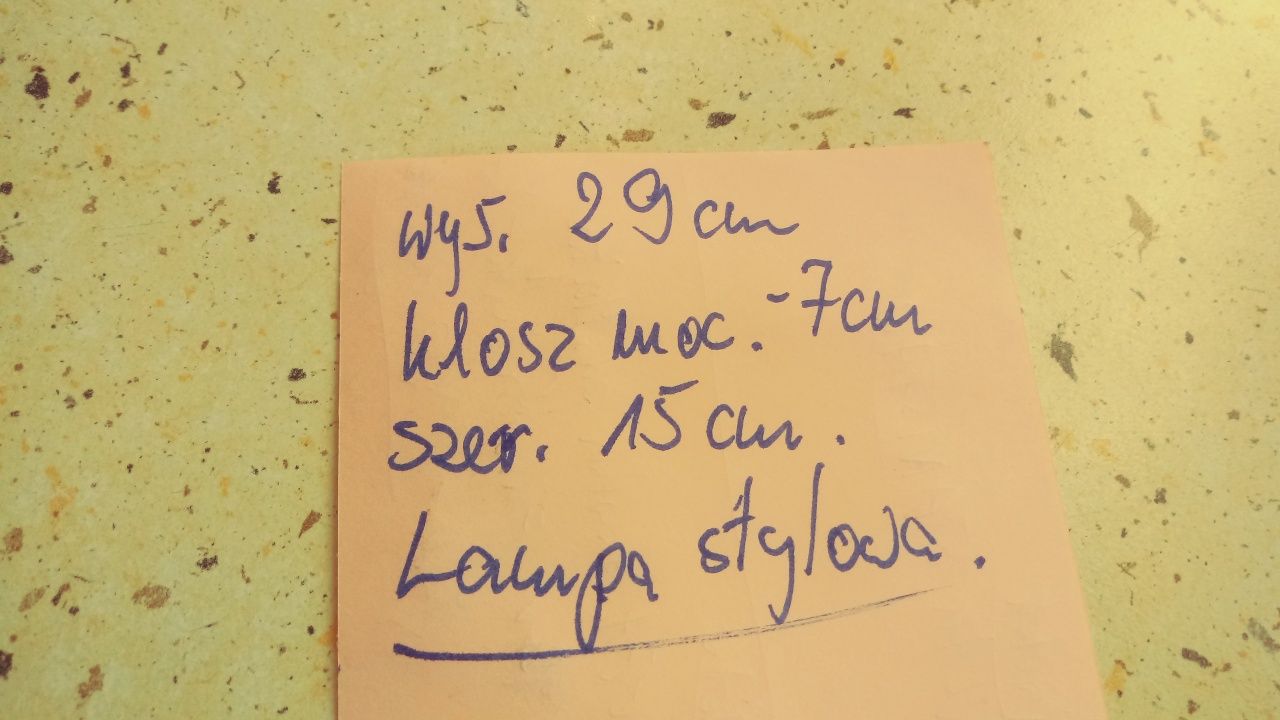 wys. 29 cm
klosz moc. - 7cm
szer. 15 cm.
Lampa stylowa.